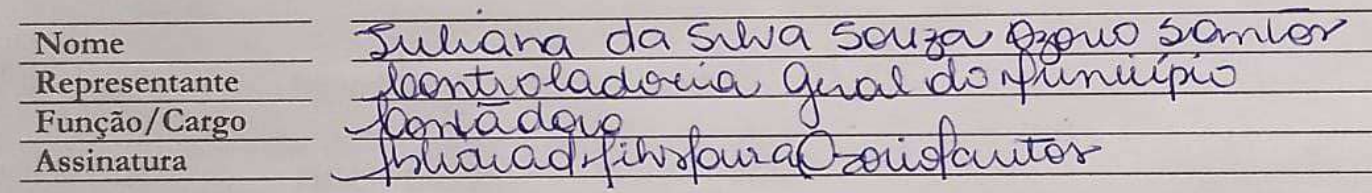 Nome Juliana da Silva Souza Ozorio Santos
Representante Controladoria Geral do Município
Função/Cargo Contadora
Assinatura Juliana da Silva Souza Ozorio Santos